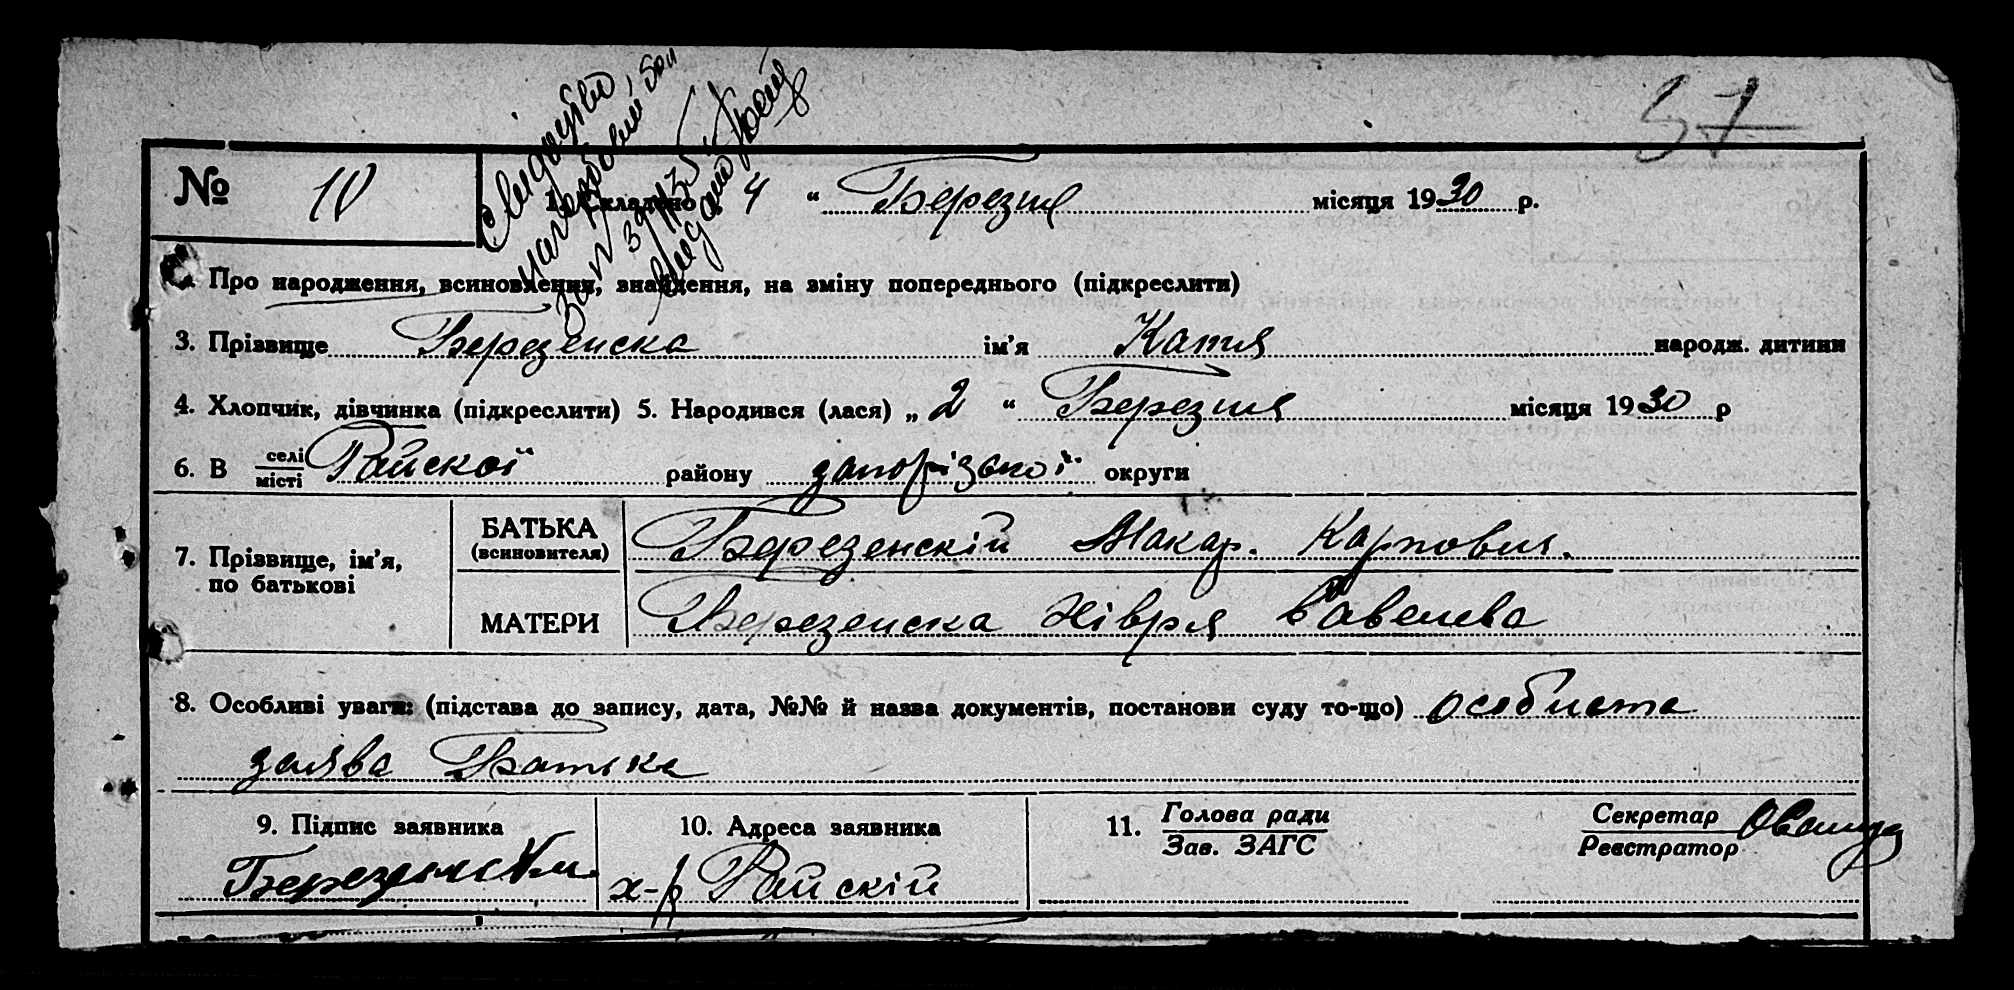 57
№ 10 1. Складено 4 “ Березня місяця 1930 р.
Про народження, всиновлення, знайдення, на зміну попереднього (підкреслити)
3. Прізвище Березенска ім’я Катя народж. дитини
4. Хлопчик, дівчинка (підкреслити) 5. Народився (лася) „ 2 “ Березня місяця 1930 р
6. В селі місті Райскої району запорізької округи
7. Прізвище, ім’я, по батькові
БАТЬКА (всиновителя) Березенскій Макар. Карпович.
МАТЕРИ Березенска Хівря Савелева
8. Особливі уваги: (підстава до запису, дата, №№ й назва документів, постанови суду то-що) особиста
заява Батька
9. Підпис заявника
10. Адреса заявника
х-р Райскій
11. Голова ради Зав. ЗАГС
Секретар Реєстратор